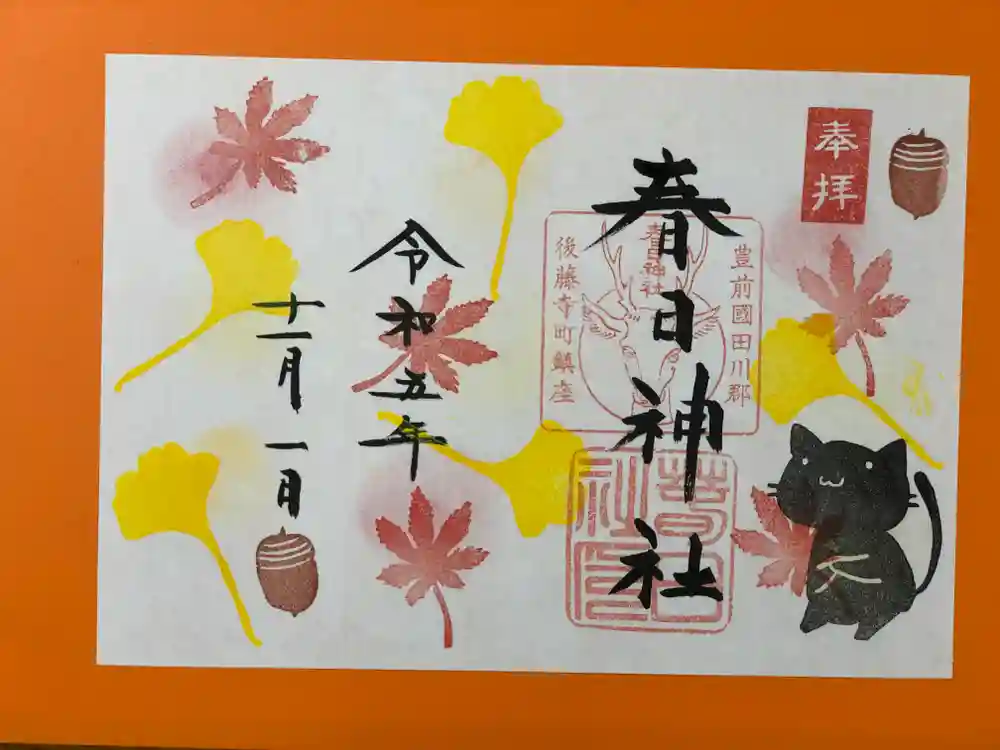 奉拝
豊前國田川郡
春日神社
後藤寺町鎮座
春日神社
令和五年
十一月一日